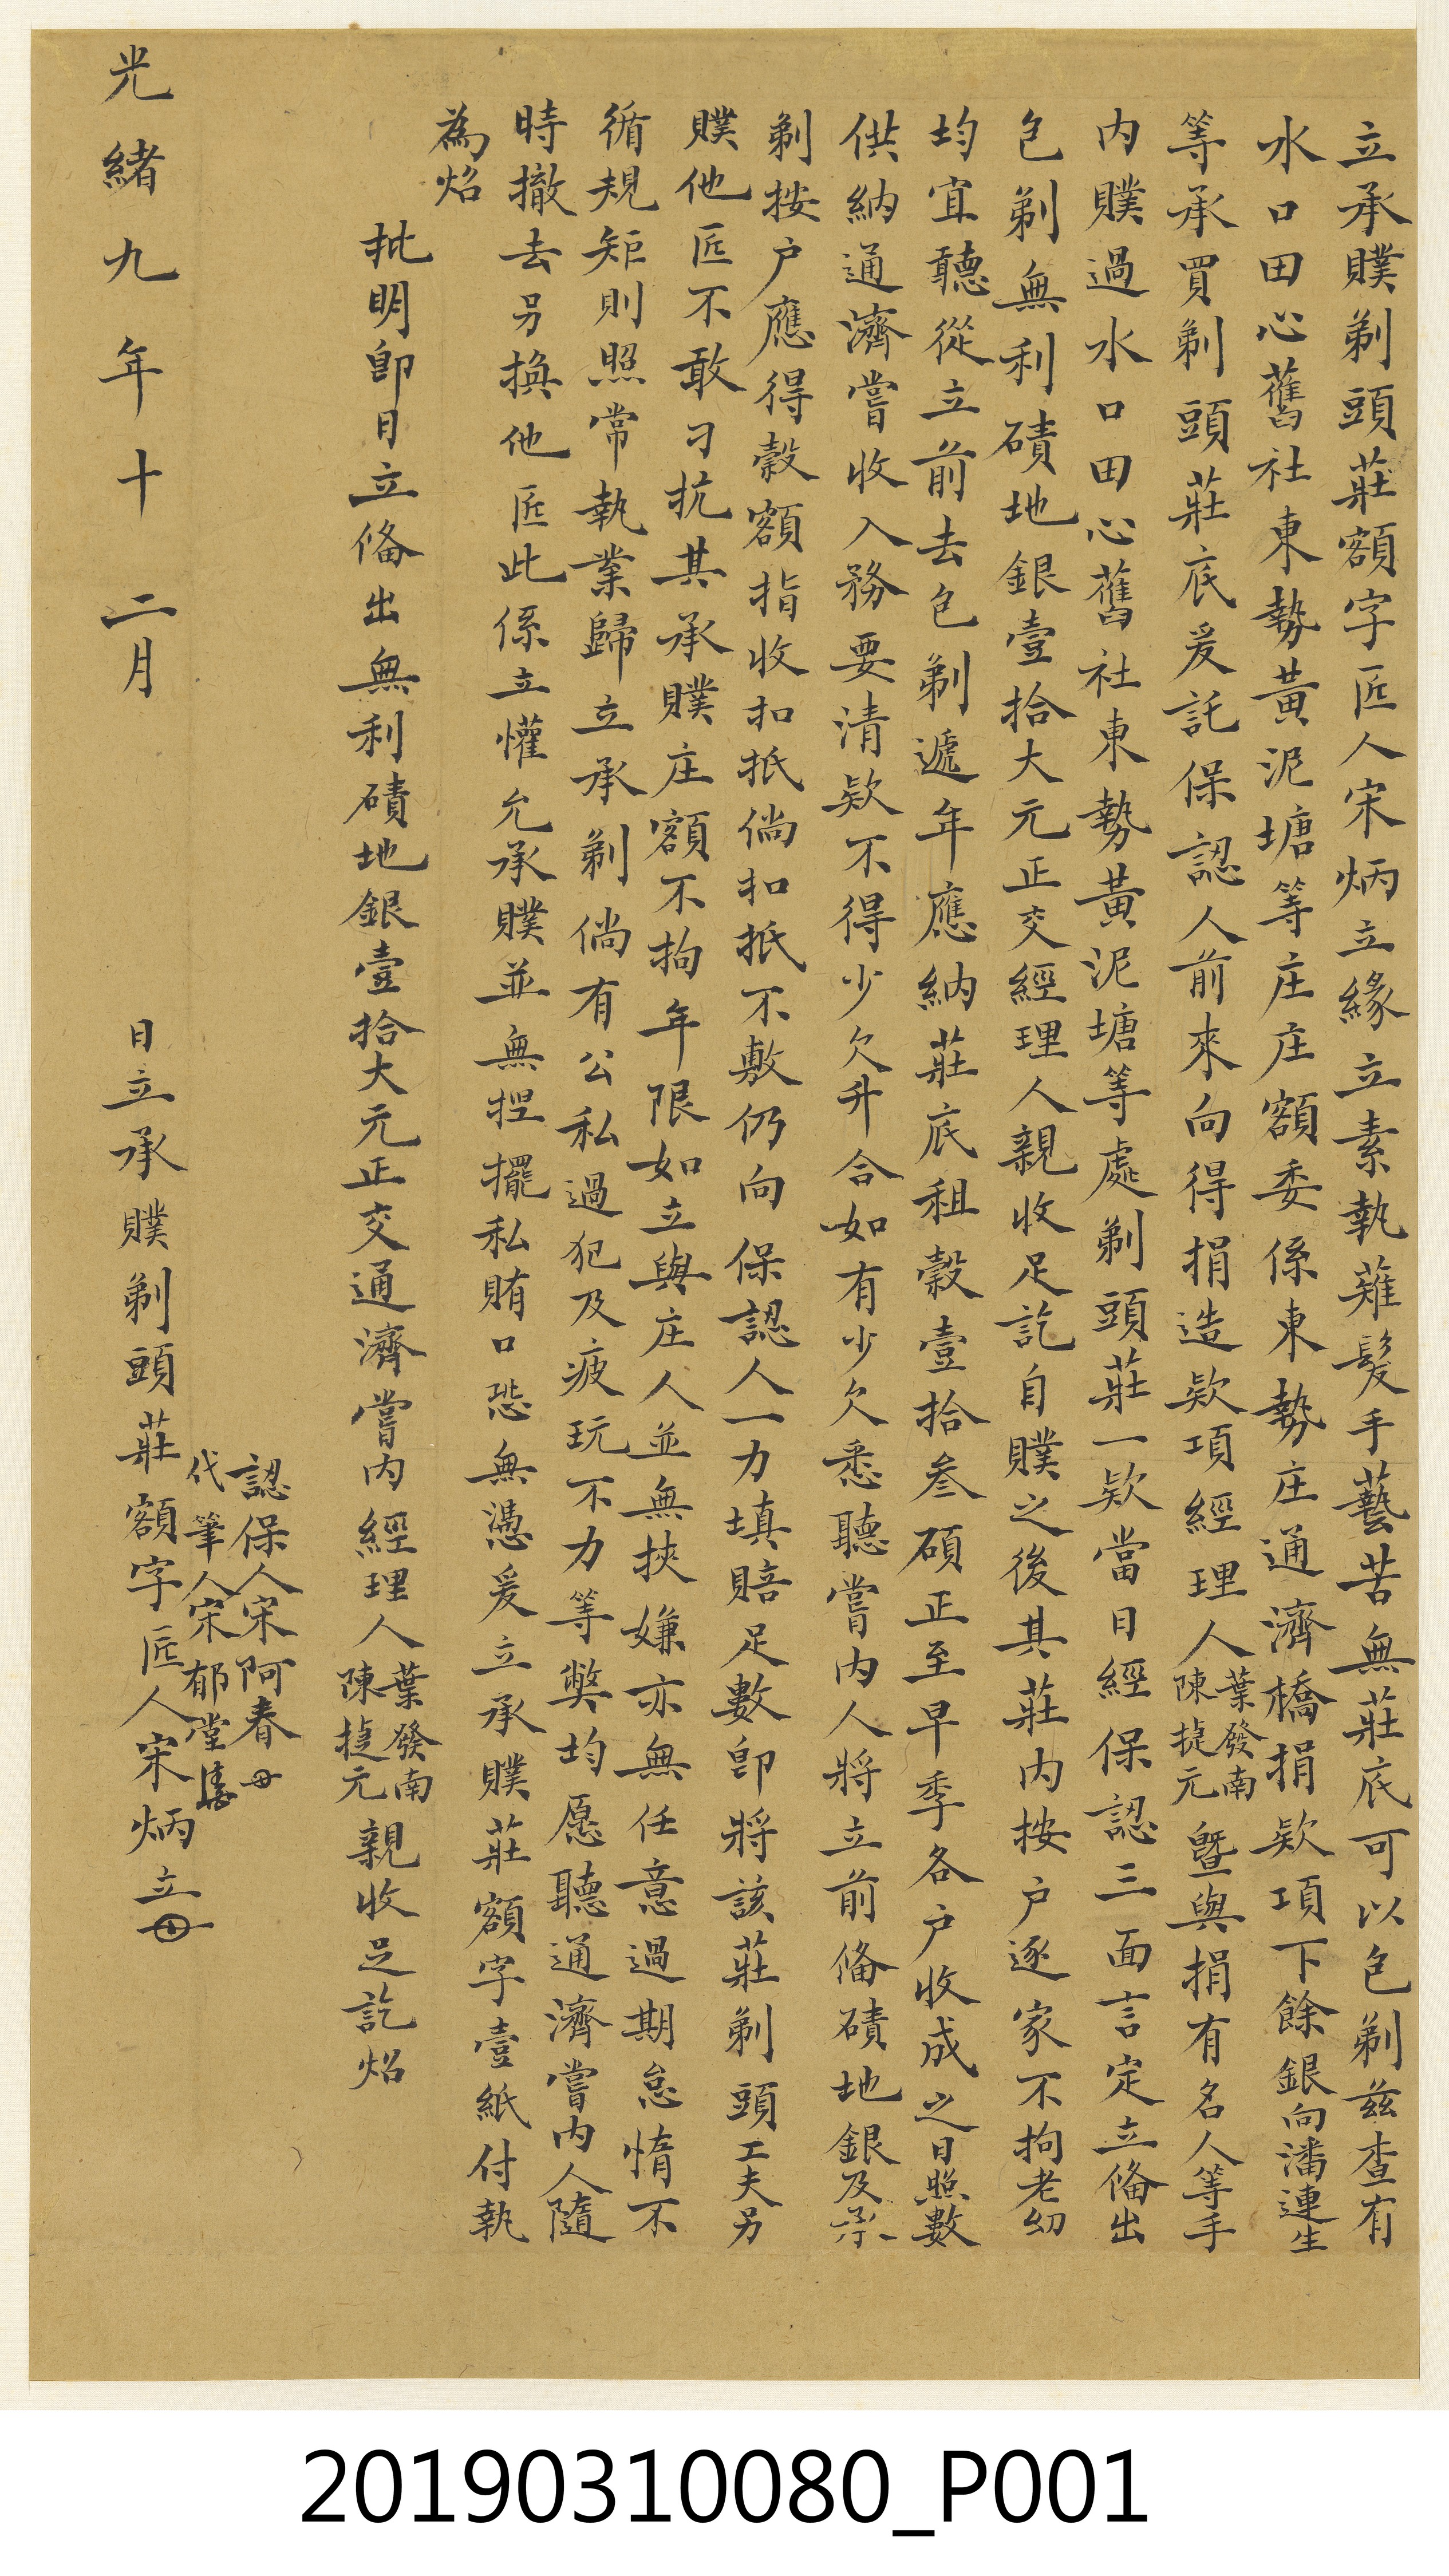 立承贌剃頭莊額字匠人宋炳立緣立素執薙髮手藝苦無莊底可以包剃茲查有
水口田心舊社東勢黃泥塘等庄庄額委係東勢庄通濟橋捐欵項下餘銀向潘連生
等承買剃頭莊底爰託保認人前來向得捐造欵項經理人葉發南陳捷元暨與捐有名人等手
內贌過水口田心舊社東勢黃泥塘等處剃頭莊一欵當日經保認三面言定立備出
包剃無利磧地銀壹拾大元正交經理人親收足訖自贌之後其莊內按户逐家不拘老幼
均宜聽從立前去包剃遞年應納莊底租穀壹拾叁碩正至早季各户收成之日照數
供納通濟嘗收入務要清欵不得少欠升合如有少欠悉聽嘗內人將立前備磧地銀及承
剃按户應得穀額指收扣抵倘扣抵不敷仍向保認人一力填賠足數即將該莊剃頭工夫另
贌他匠不敢刁抗其承贌庄額不拘年限如立與庄人並無挾嫌亦無任意過期怠惰不
循規矩則照常執業歸立承剃倘有公私過犯及疲玩不力等獘均愿聽通濟嘗內人隨
時撤去另換他匠此係立懽允承贌並無揑擺私賄口恐無憑爰立承贌莊額字壹紙付執
為炤
批明即日立備出無利磧地銀壹拾大元正交通濟嘗內經理人葉發南陳捷元親收足訖炤
認保人宋阿春
代筆人宋郁堂
光緒九年十二月 日立承贌剃頭莊額字匠人宋炳立
20190310080_P001